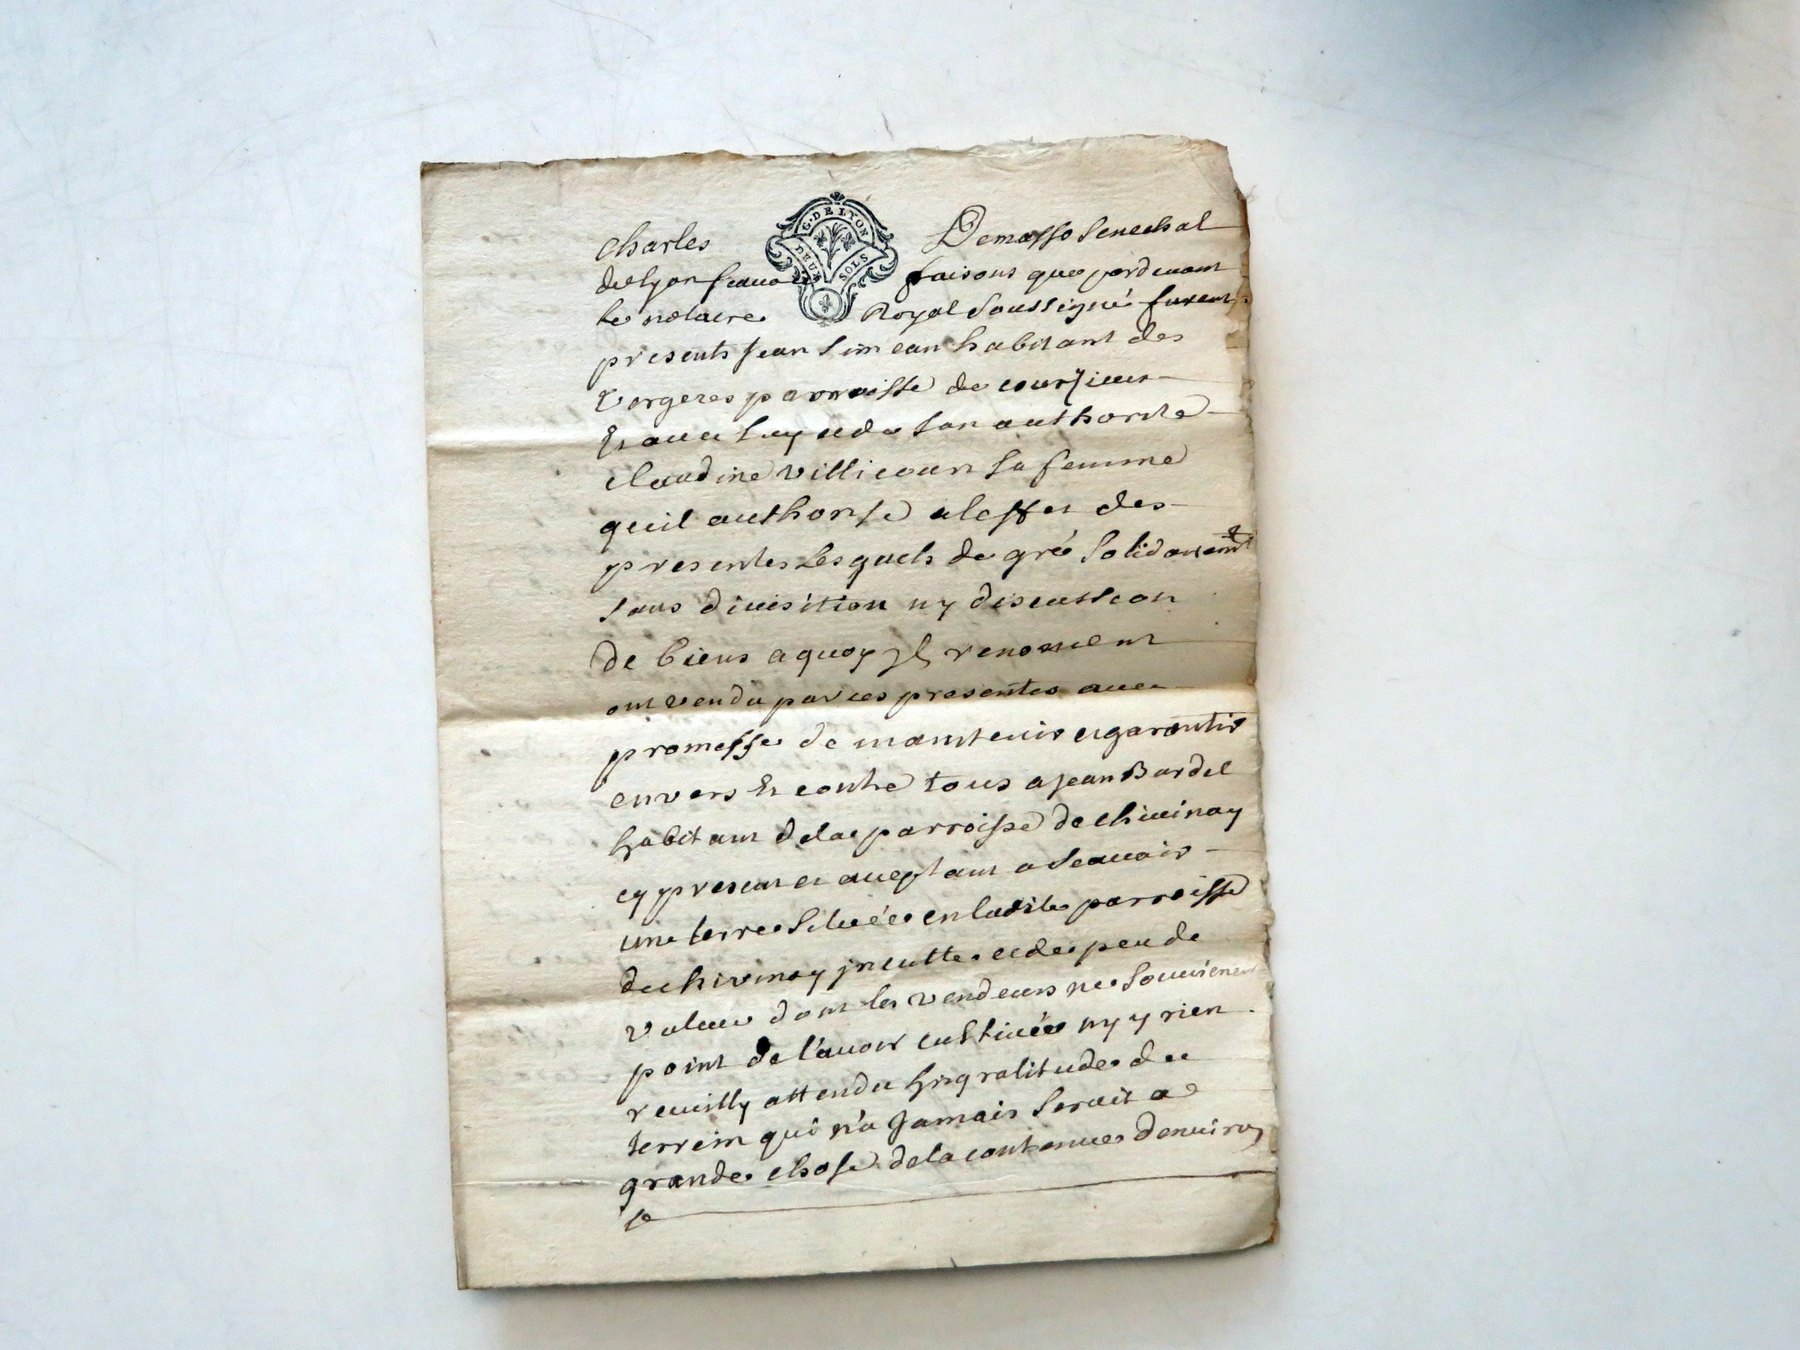 G. DE LYON
DEUX SOLS
Charles Demasso Senechal
de lyon scavoir faisons que pardevant
le notaire Royal Soussigné furent
presents Jean Simean habitant des
Vergeres parroisse de courzieux
Et avec luy et de son authorite
claudine Villicean sa femme
qu'il authorise a leffet des
presentes Lesquels de gré Solidairemt
sans divisition ny discussion
de biens a quoy Jls renoncent
ont vendu par ces presentes avec
promesse de maintenir et garantir
envers Et contre tous a Jean Bardel
habitant de la parroisse de chivinay
cy present et acceptant a Scavoir
une terre Située en ladite parroisse
de chivinay jnculte et de peu de
valeur dont les vendeurs ne souvienent
point de l'avoir cultivée ny y rien
reuilly attendu Lingratitude du
terrein qui n'a Jamais Servit a
grande chose de la contenue d'environ